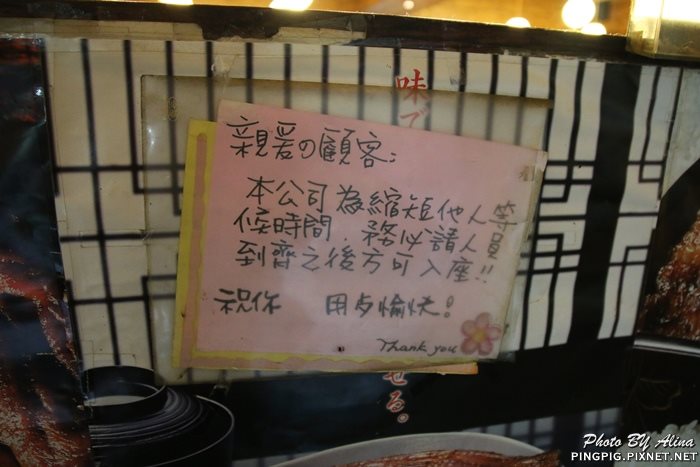 味で
親愛の顧客:
本公司為縮短他人等
候時間，務必請人員
到齊之後方可入座!!
祝你 用歺愉快!
Thank you
せる。
Photo BY Alina
PINGPIG.PIXNET.NET